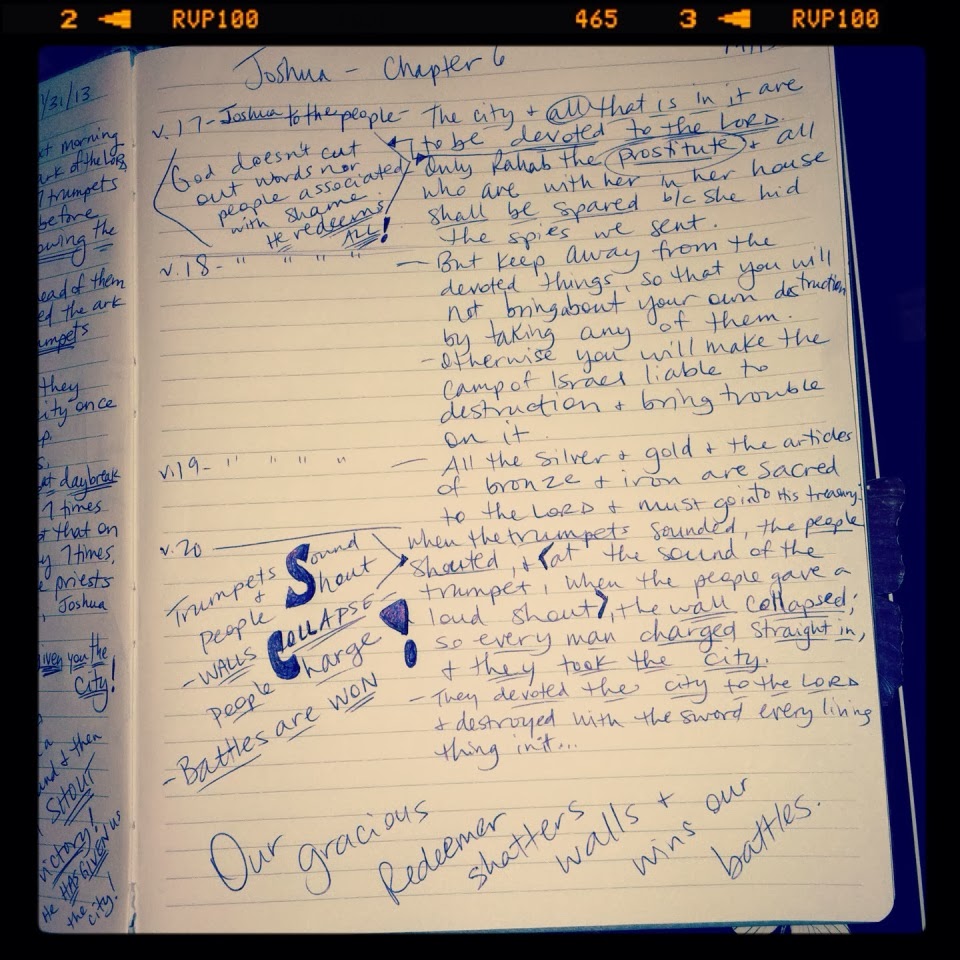 2 RVP100 465 3 RVP100
Joshua - Chapter 6
v.17 - Joshua to the people - The city + all that is in it are
to be devoted to the LORD.
Only Rahab the prostitute + all
who are with her in her house
shall be spared b/c she hid
the spies we sent.
God doesn't cut
out words nor
people associated
with shame
He redeems
ALL!
v.18 - " " " " - But keep away from the
devoted things, so that you will
not bring about your own destruction
by taking any of them.
- Otherwise you will make the
camp of Israel liable to
destruction + bring trouble
on it.
v.19 - " " " " - All the silver + gold + the articles
of bronze + iron are sacred
to the LORD + must go into His treasury.
v.20 - When the trumpets sounded, the people
shouted, + (at the sound of the
trumpet, when the people gave a
loud shout), the wall collapsed;
so every man charged straight in,
+ they took the city.
- They devoted the city to the LORD
+ destroyed with the sword every living
thing in it...
Trumpets Sound
+
people Shout
- WALLS COLLAPSE -
people Charge !
- Battles are WON
Our gracious
Redeemer
shatters
walls +
wins our
battles.
1/31/13
morning
ark of the LORD
7 trumpets
before
the
ead of them
ed the ark
umpets
they
city once
at daybreak
7 times
that on
7 times,
priests
Joshua
given you the
City!
+ then
SHOUT
victory!
He HAS GIVEN us
the city!